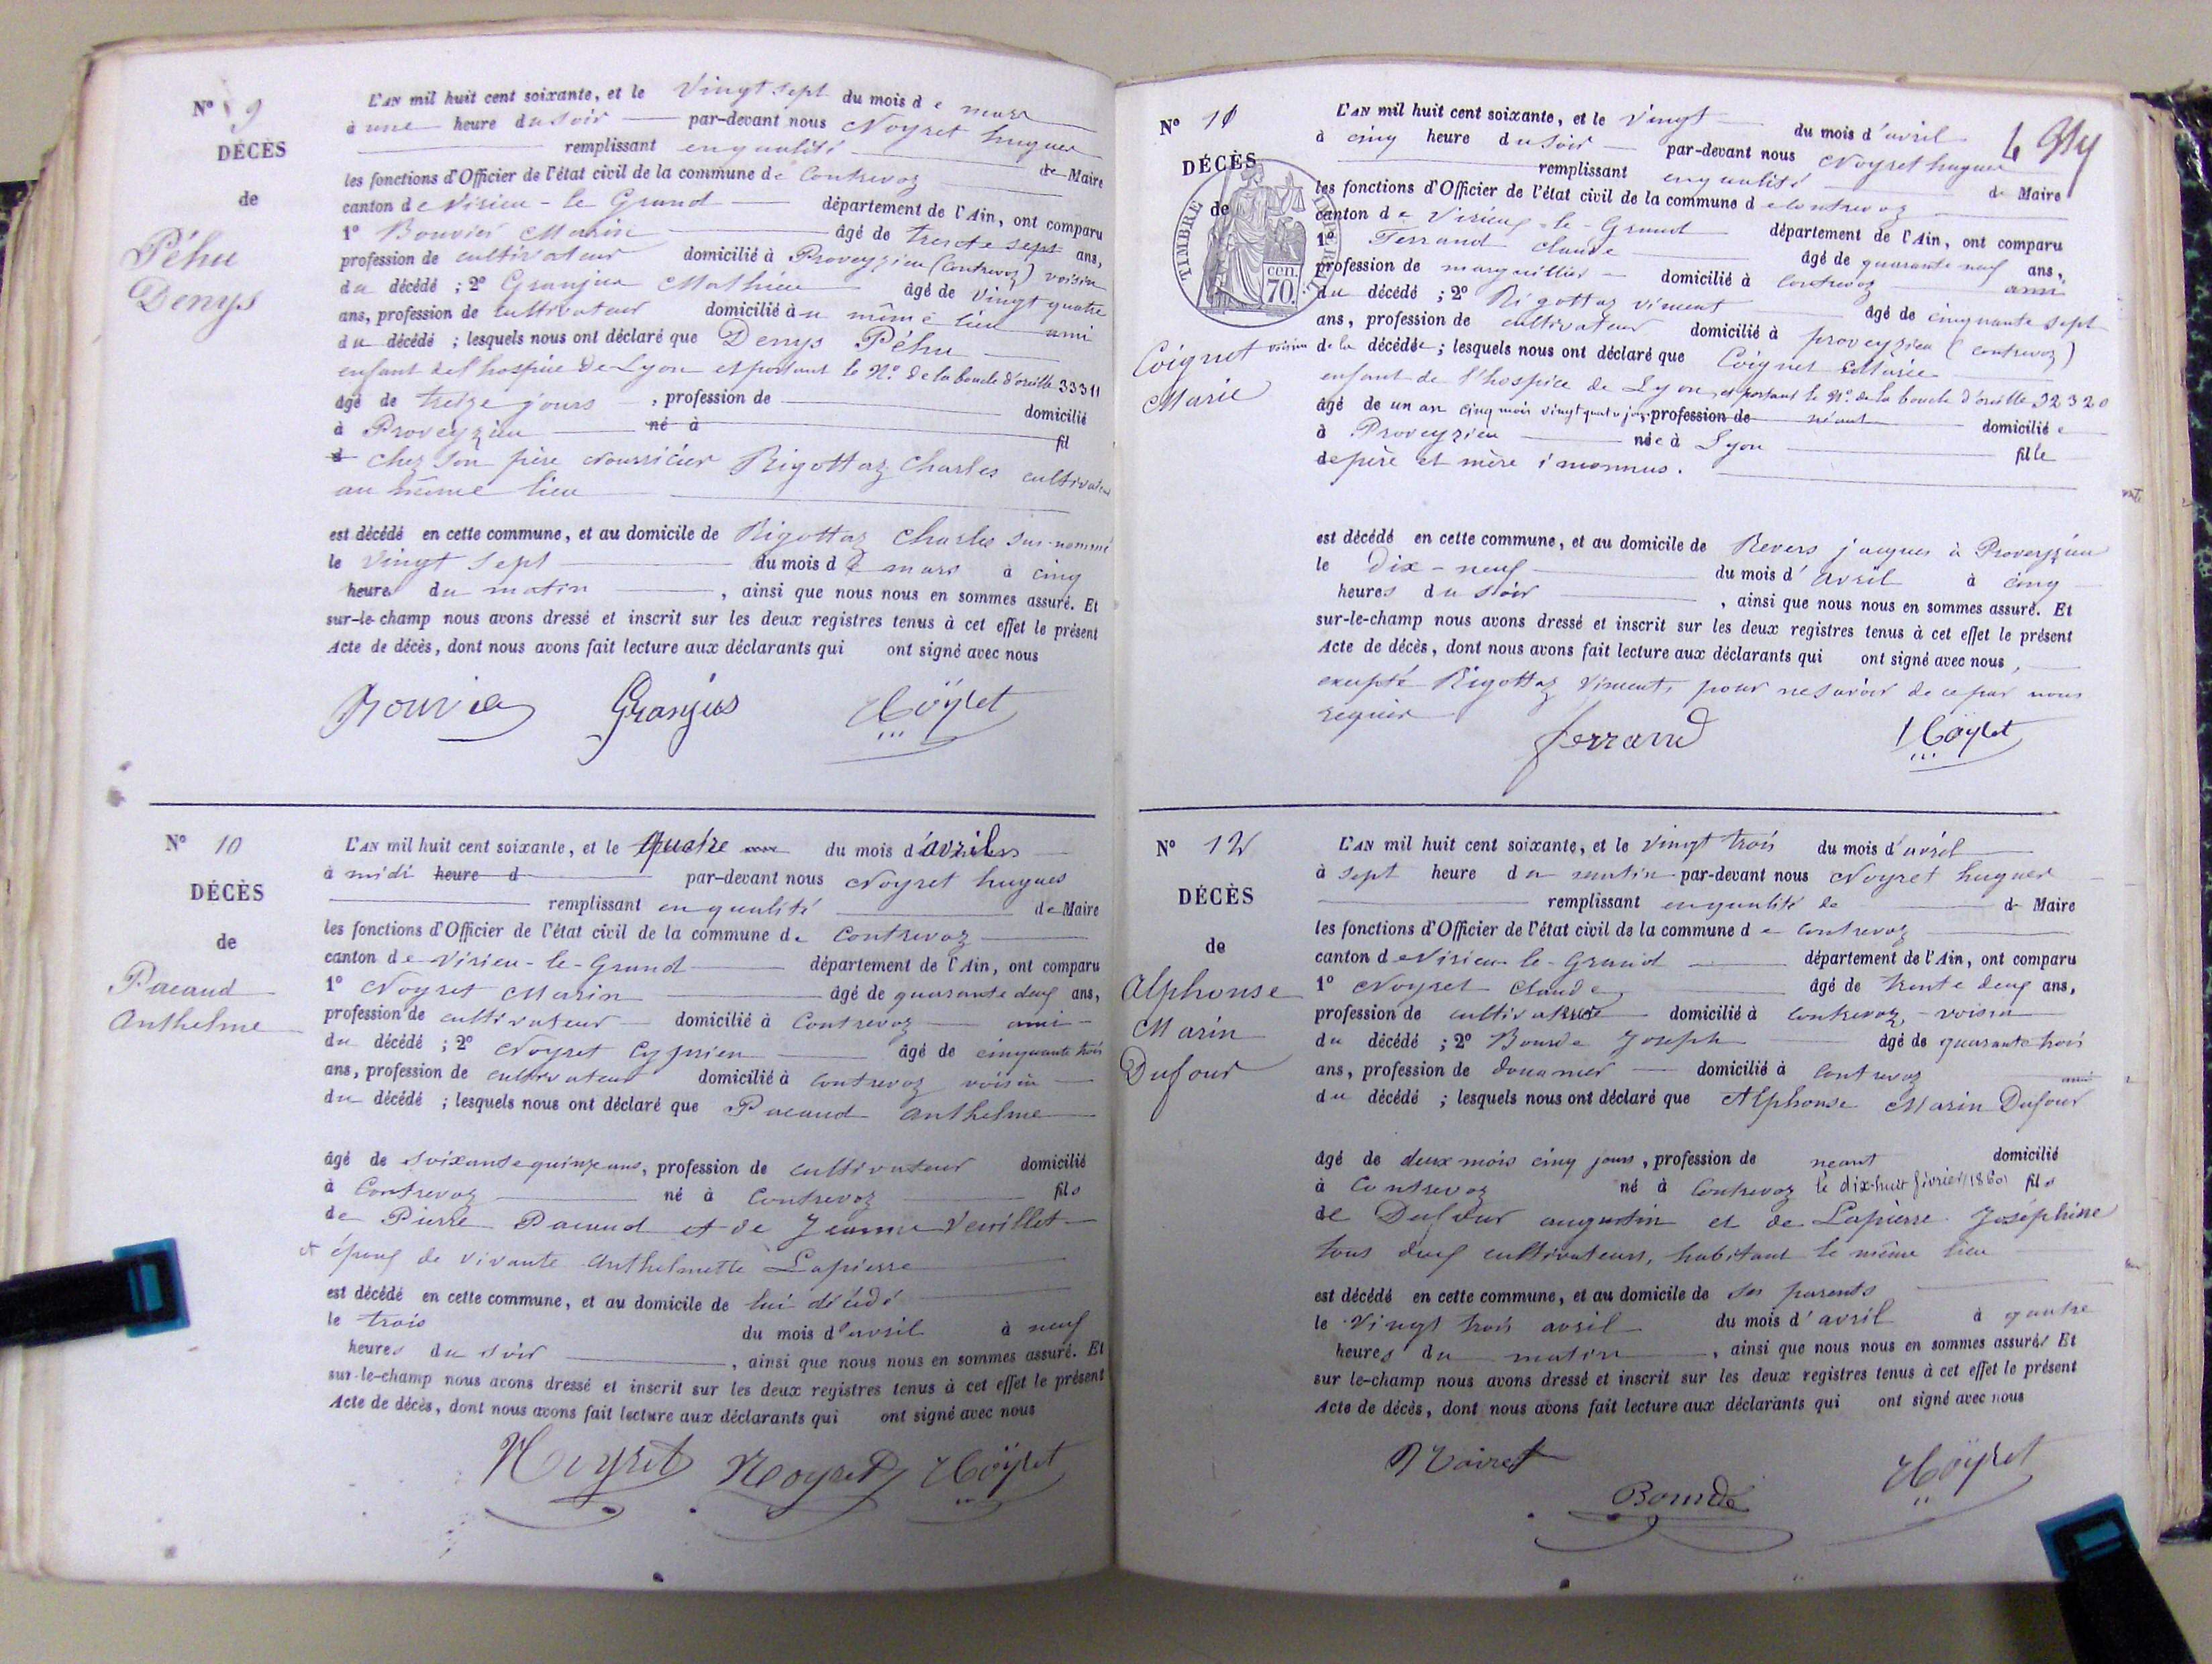 N° 9
DÉCÈS
de
Péhu
Denys
L'AN mil huit cent soixante, et le Vingt sept du mois de mars
à une heure du soir par-devant nous Noyret hugues
remplissant en qualité de Maire
les fonctions d'Officier de l'état civil de la commune de Contrevoz
canton de Virieu-le-Grand département de l'Ain, ont comparu
1° Bouvier Marin âgé de trente sept ans,
profession de cultivateur domicilié à Proveyzieu (Contrevoz) voisin
du décédé ; 2° Granjus Mathieu âgé de vingt quatre
ans, profession de cultivateur domicilié au même lieu ami
du décédé ; lesquels nous ont déclaré que Denys Péhu
enfant de l'hospice de Lyon et portant le N° de la boucle d'oreille 33311
âgé de treize jours, profession de domicilié
à Proveyzieu né à fil
d chez son père nourricier Rigottaz Charles cultivateur
au même lieu
est décédé en cette commune, et au domicile de Rigottaz Charles sus-nommé
le vingt sept du mois de mars à cinq
heures du matin, ainsi que nous nous en sommes assuré. Et
sur-le-champ nous avons dressé et inscrit sur les deux registres tenus à cet effet le présent
Acte de décès, dont nous avons fait lecture aux déclarants qui ont signé avec nous
Bouvier Granjus Noÿret
N° 10
DÉCÈS
de
Pacaud
Anthelme
L'AN mil huit cent soixante, et le quatre du mois d'avril
à midi heure d par-devant nous Noyret hugues
remplissant en qualité de Maire
les fonctions d'Officier de l'état civil de la commune de Contrevoz
canton de Virieu-le-Grand département de l'Ain, ont comparu
1° Noyret Marin âgé de quarante deux ans,
profession de cultivateur domicilié à Contrevoz ami
du décédé ; 2° Noyret Cyprien âgé de cinquante trois
ans, profession de cultivateur domicilié à Contrevoz voisin
du décédé ; lesquels nous ont déclaré que Pacaud Anthelme
âgé de soixante quinze ans, profession de cultivateur domicilié
à Contrevoz né à Contrevoz fils
de Pierre Pacaud et de Jeanne
et époux de vivante Anthelmette Lapierre
est décédé en cette commune, et au domicile de lui décédé
le trois du mois d'avril à neuf
heures du soir, ainsi que nous nous en sommes assuré. Et
sur-le-champ nous avons dressé et inscrit sur les deux registres tenus à cet effet le présent
Acte de décès, dont nous avons fait lecture aux déclarants qui ont signé avec nous
Noyret Noyret Noÿret
N° 11
DÉCÈS
de
TIMBRE
cen.
70.
Coignet
Marie
L'AN mil huit cent soixante, et le vingt du mois d'avril
à cinq heure du soir par-devant nous Noyret hugues
remplissant en qualité de Maire
les fonctions d'Officier de l'état civil de la commune de Contrevoz
canton de Virieu-le-Grand département de l'Ain, ont comparu
1° Ferrand Claude âgé de quarante neuf ans,
profession de marguillier domicilié à Contrevoz ami
du décédé ; 2° Rigottaz Vincent âgé de cinquante sept
ans, profession de cultivateur domicilié à proveyzieu (Contrevoz)
voisin de la décédée ; lesquels nous ont déclaré que Coignet Marie
enfant de l'hospice de Lyon, et portant le N° de la boucle d'oreille 32320
âgé de un an cinq mois vingt quatre jours, profession de néant domiciliée
à Proveyzieu née à Lyon fille
de père et mère inconnus.
est décédé en cette commune, et au domicile de Revers jacques à Proveyzieu
le Dix-neuf du mois d'avril à cinq
heures du soir, ainsi que nous nous en sommes assuré. Et
sur-le-champ nous avons dressé et inscrit sur les deux registres tenus à cet effet le présent
Acte de décès, dont nous avons fait lecture aux déclarants qui ont signé avec nous,
excepté Rigottaz Vincent, pour ne savoir de ce par nous
requis
ferrand Noÿret
N° 12
DÉCÈS
de
Alphonse
Marin
Dufour
L'AN mil huit cent soixante, et le vingt trois du mois d'avril
à sept heure du matin par-devant nous Noyret hugues
remplissant en qualité de de Maire
les fonctions d'Officier de l'état civil de la commune de Contrevoz
canton de Virieu-le-Grand département de l'Ain, ont comparu
1° Noyret Claude âgé de trente deux ans,
profession de cultivateur domicilié à Contrevoz, voisin
du décédé ; 2° Bourde Joseph âgé de quarante trois
ans, profession de douanier domicilié à Contrevoz ami
du décédé ; lesquels nous ont déclaré que Alphonse Marin Dufour
âgé de deux mois cinq jours, profession de néant domicilié
à Contrevoz né à Contrevoz le dix-huit février 1860 fils
de Dufour augustin et de Lapierre Joséphine
tous deux cultivateurs, habitant le même lieu
est décédé en cette commune, et au domicile de ses parents
le vingt trois avril du mois d'avril à quatre
heures du matin, ainsi que nous nous en sommes assurés Et
sur le-champ nous avons dressé et inscrit sur les deux registres tenus à cet effet le présent
Acte de décès, dont nous avons fait lecture aux déclarants qui ont signé avec nous
Noiret Bourde Noÿret